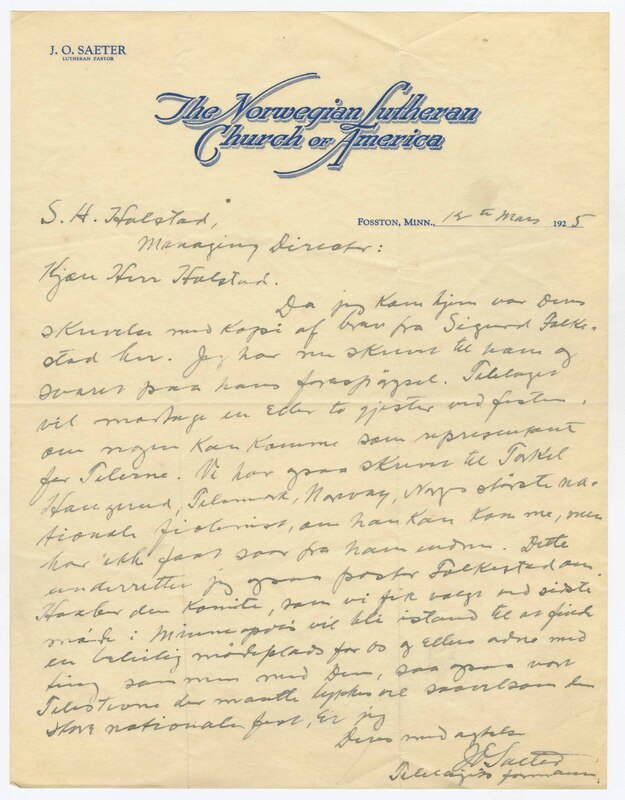 J. O. SAETER
LUTHERAN PASTOR
The Norwegian Lutheran
Church of America
FOSSTON, MINN., 12th Mars 1925
S. H. Holstad,
Managing Director:
Kjære Herr Holstad.
Da jeg kom hjem var Deres
skrivelse med kopi af brev fra Sigurd Folke-
stad her. Jeg har nu skrevet til ham og
svaret paa hans forespørgsel. Telelaget
vil modtage en eller to gjester ved festen,
om nogen kan komme som representant
for Telerne. Vi har ogsaa skrevet til Torkel
Haugerud, Telemark, Norway, Norges største na-
tionale fiolinist, om han kan komme, men
har ikke faat svar fra ham endnu. Dette
underretter jeg ogsaa pastor Folkestad om.
Haaber den komite, som vi fik valgt ved sidste
møde i Minneapolis vil bli istand til at finde
en beleilig mødeplads for os og ellers ordne med
ting sammen med Dem, saa ogsaa vort
Telestevne der maatte lykkes vel saavelsom den
store nationale fest, Er jeg
Deres med agtelse
J. O. Saeter
Telelagets formann.